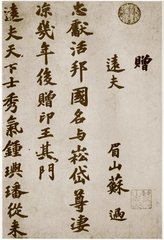 贈
遠夫
眉山蘇過
忠獻活邦國名与嵩岱尊淒
涼幾年後贈印王其門
遠夫天下士秀氣鍾璵璠從來